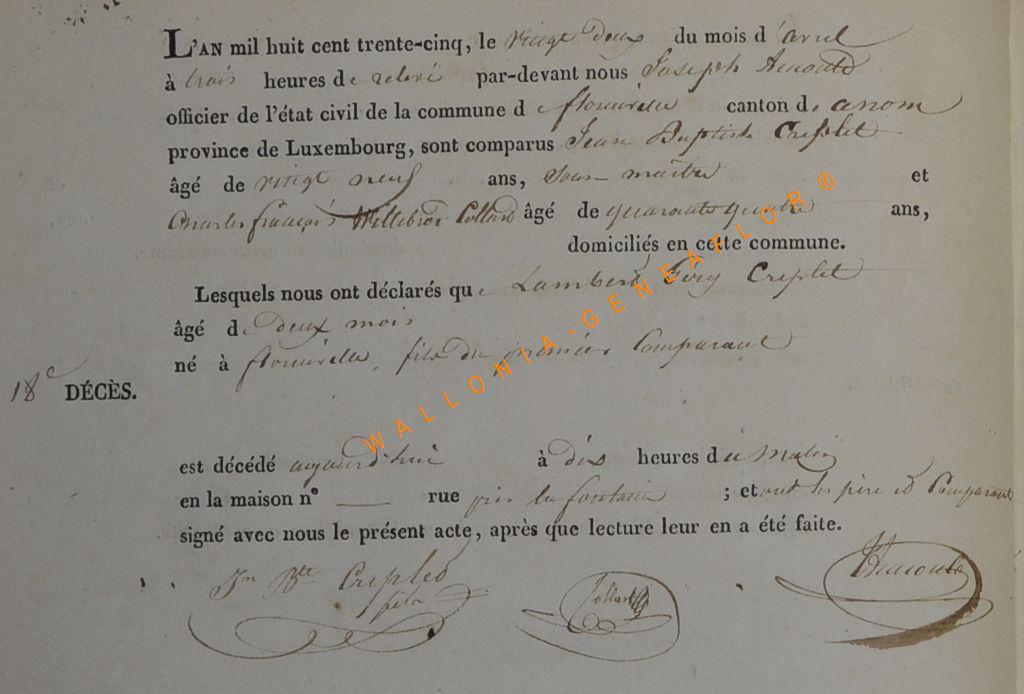 L'AN mil huit cent trente-cinq, le vingt deux du mois d'avril
à trois heures de relevé par-devant nous Joseph Arnould
officier de l'état civil de la commune de florenville canton d
province de Luxembourg, sont comparus Jean Baptiste Creplet
âgé de vingt neuf ans, Sous-maitre et
Charles françois Willebror Collard âgé de quarante quatre ans,
domiciliés en cette commune.
Lesquels nous ont déclarés que Lambert Creplet
âgé de deux mois
né à florenville, fils du premier Comparant
18e DÉCÈS.
est décédé aujourd'hui à dix heures du Matin
en la maison n° — rue près la fontaine ; et ont les père et Comparant
signé avec nous le présent acte, après que lecture leur en a été faite.
Jn Bte Creplet
fils
Collard
Arnould
WALLONIA-GENEAFLOR®